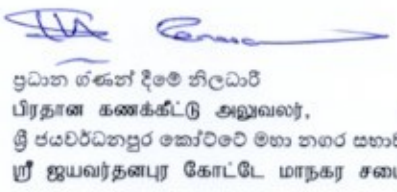 ප්‍රධාන ගණන් දීමේ නිලධාරී
பிரதான கணக்கீட்டு அலுவலர்,
ශ්‍රී ජයවර්ධනපුර කෝට්ටේ මහා නගර සභාව
ஸ்ரீ ஜயவர்தனபுர கோட்டே மாநகர சபை